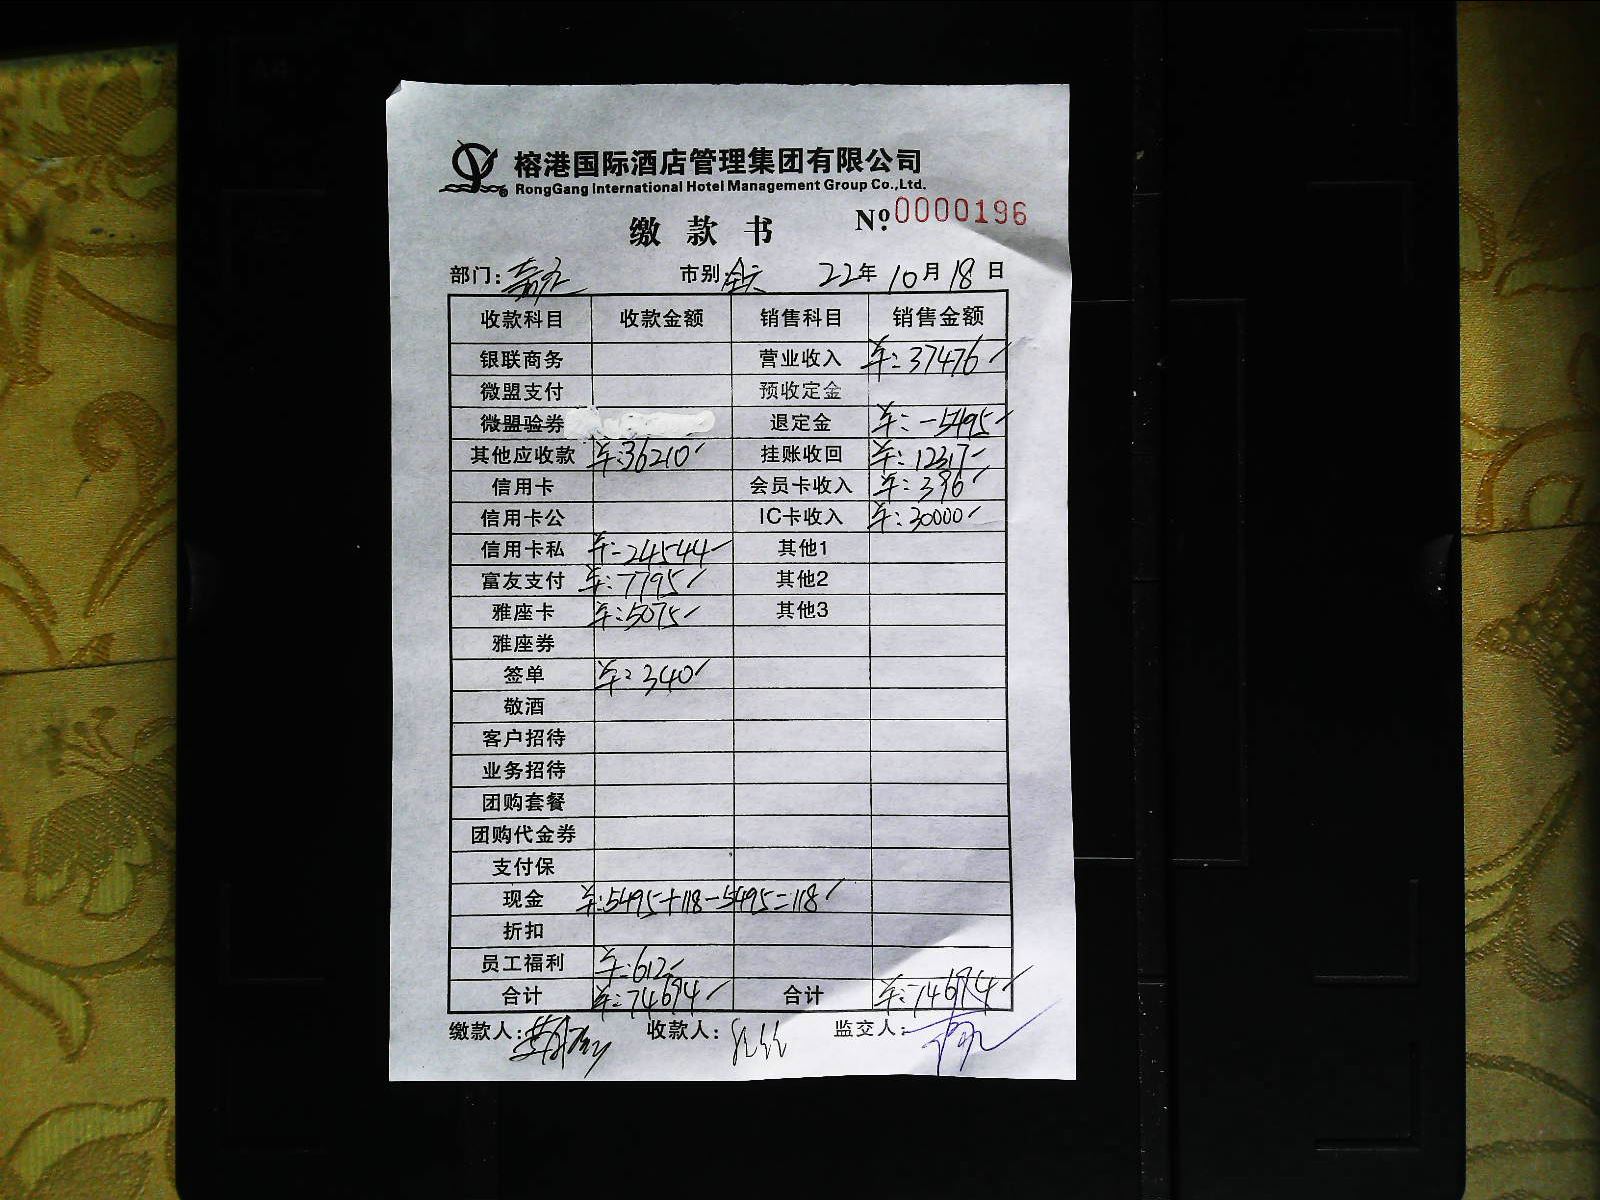 榕港国际酒店管理集团有限公司
RongGang International Hotel Management Group Co.,Ltd.
缴款书 Nº:0000196
部门: 市别: 22年10月18日
收款科目 收款金额 销售科目 销售金额
银联商务 营业收入 ¥:37476
微盟支付 预收定金
微盟验券 退定金 ¥:-5495
其他应收款 ¥:36210 挂账收回 ¥:12317
信用卡 会员卡收入 ¥:396
信用卡公 IC卡收入 ¥:30000
信用卡私 ¥:24544 其他1
富友支付 ¥:7795 其他2
雅座卡 ¥:5075 其他3
雅座券
签单 ¥:340
敬酒
客户招待
业务招待
团购套餐
团购代金券
支付保
现金 ¥:5495+118-5495=118
折扣
员工福利 ¥:612
合计 ¥:74694 合计 ¥:74694
缴款人: 收款人: 监交人: